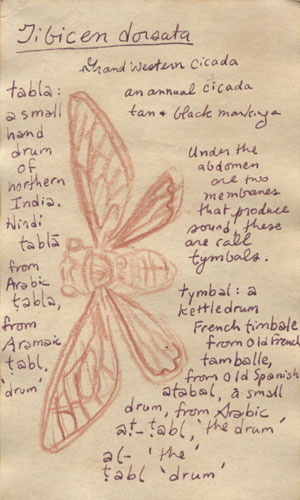 Tibicen dorsata
Grand Western Cicada
an annual cicada
tan + black markings
tabla:
a small
hand
drum
of
northern
India.
Hindi
tablā
from
Arabic
ṭabla,
from
Aramaic
ṭabl,
'drum'
Under the
abdomen
are two
membranes
that produce
sound, these
are call
tymbals.
tymbal: a
kettledrum
French timbale
from Old French
tamballe,
from Old Spanish
atabal, a small
drum, from Arabic
aṭ-ṭabl, 'the drum'
al- 'the'
ṭabl 'drum'